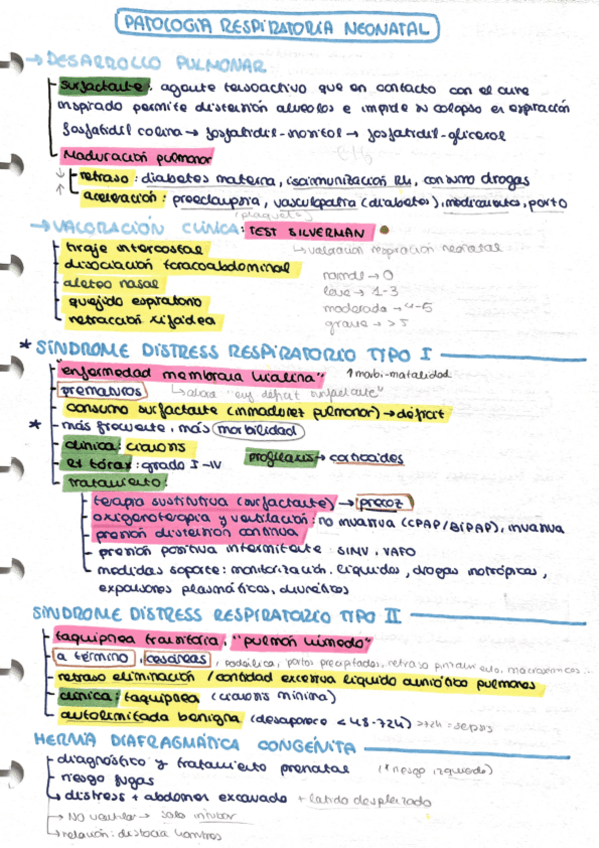 PATOLOGIA RESPIRATORIA NEONATAL
→ DESARROLLO PULMONAR
surfactante: agente tensoactivo que en contacto con el aire
inspirado permite distensión alveolos e impide su colapso en espiración
fosfatidil colina → fosfatidil-inositol → fosfatidil-glicerol
Maduración pulmonar
↓ retraso: diabetes materna, isoinmunización Rh, consumo drogas
↑ aceleración: preeclampsia, vasculopatía (diabetes), medicamentos, parto
(plaquets)
→ VALORACIÓN CLÍNICA: TEST SILVERMAN
↳ valoración respiración neonatal
tiraje intercostal
disociación toracoabdominal
normal → 0
aleteo nasal
leve → 1-3
quejido espiratorio
moderada → 4-5
retracción xifoidea
grave → > 5
* SÍNDROME DISTRESS RESPIRATORIO TIPO I
"enfermedad membrana hialina" ↑morbi-mortalidad
prematuros ↳ ahora "enf déficit surfactante"
consumo surfactante (inmadurez pulmonar) → déficit
* más frecuente, más morbilidad
clínica: cianosis profilaxis → corticoides
rx tórax: grado I-IV
tratamiento:
terapia sustitutiva (surfactante) → precoz
oxigenoterapia y ventilación: no invasiva (CPAP/BIPAP), invasiva
presión distensión continua
presión positiva intermitente: SIMV, VAFO
medidas soporte: monitorización, líquidos, drogas inotrópicas,
expansores plasmáticos, diuréticos
SÍNDROME DISTRESS RESPIRATORIO TIPO II
taquipnea transitoria, "pulmón húmedo"
a término, cesáreas, podálica, partos precipitados, retraso
retraso eliminación / cantidad excesiva líquido amniótico pulmones
clínica: taquipnea (cianosis mínima)
autolimitada benigna (desaparece < 48-72h) >72h = sepsis
HERNIA DIAFRAGMÁTICA CONGÉNITA
diagnóstico y tratamiento prenatal (↑riesgo izquierda)
riesgo fugas
↳ distress + abdomen excavado + latido desplazado
→ NO ventilar → solo intubar
→ relación: distocia hombros